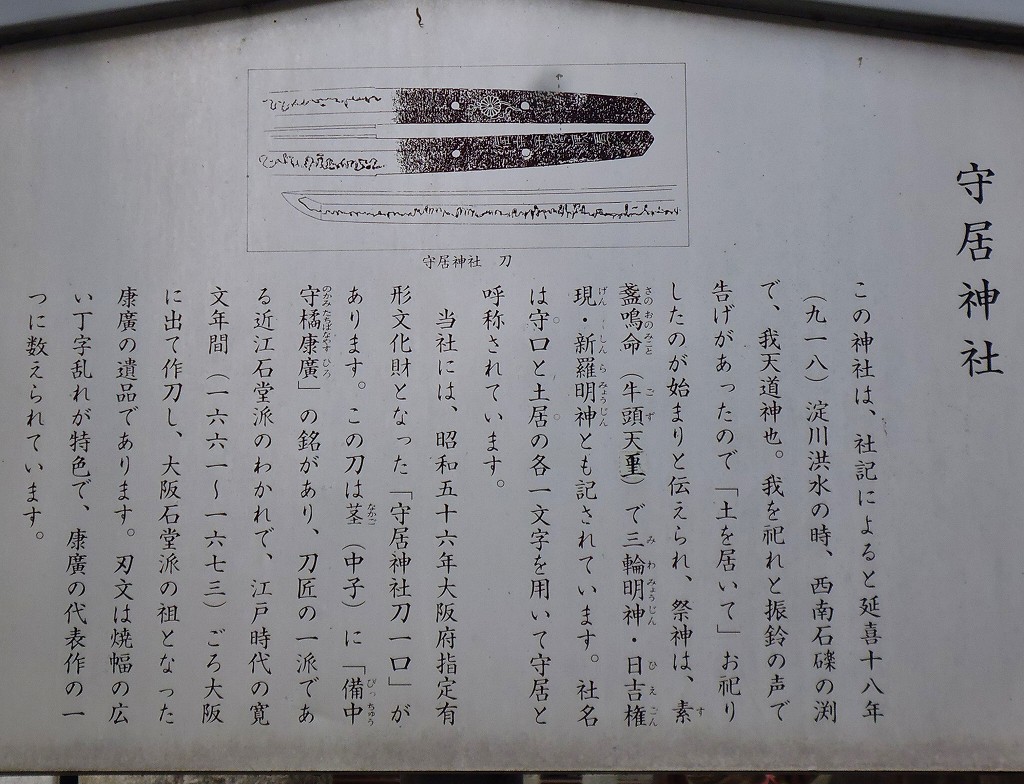 守居神社
守居神社 刀
この神社は、社記によると延喜十八年
(九一八)淀川洪水の時、西南石礫の渕
で、我天道神也。我を祀れと振鈴の声で
告げがあったので「土を居いて」お祀り
したのが始まりと伝えられ、祭神は、素
盞嗚命(牛頭天重)で三輪明神・日吉権
現・新羅明神とも記されています。社名
は守口と土居の各一文字を用いて守居と
呼称されています。
当社には、昭和五十六年大阪府指定有
形文化財となった「守居神社刀一口」が
あります。この刀は茎(中子)に「備中
守橘康廣」の銘があり、刀匠の一派であ
る近江石堂派のわかれで、江戸時代の寛
文年間(一六六一〜一六七三)ごろ大阪
に出て作刀し、大阪石堂派の祖となった
康廣の遺品であります。刃文は焼幅の広
い丁字乱れが特色で、康廣の代表作の一
つに数えられています。